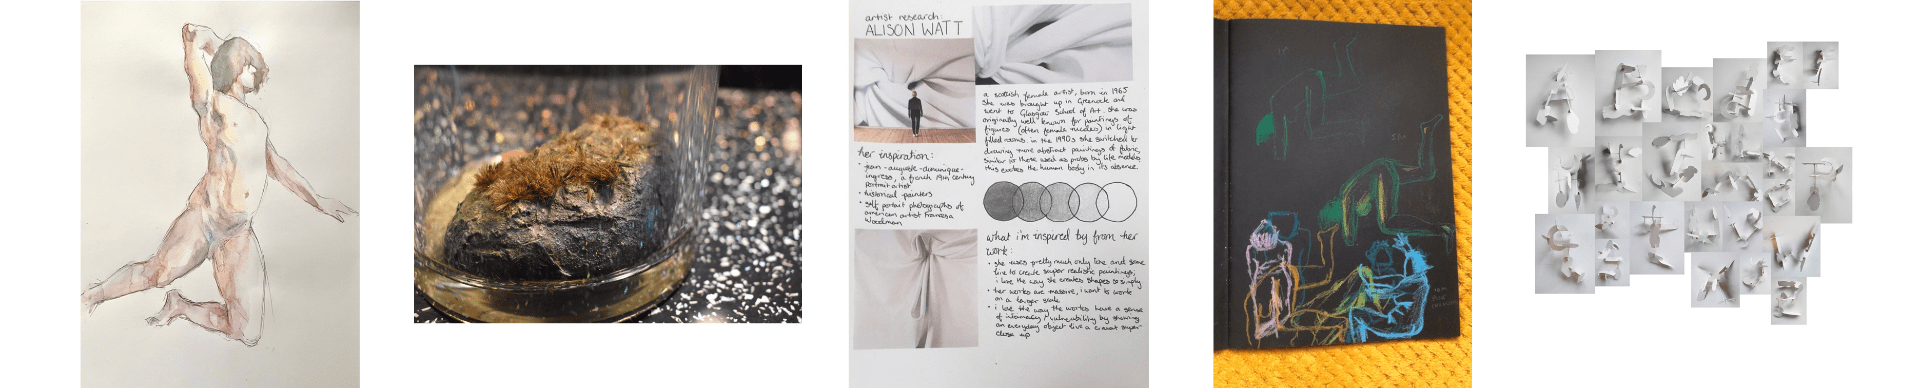 artist research:
ALISON WATT
a scottish female artist, born in 1965
she was brought up in Greenock and
went to Glasgow School of Art. she was
originally well known for paintings of
figures (often female nudes) in light
filled rooms. in the 1990s she switched to
drawing more abstract paintings of fabric
similar to those used as probs by life models
this evokes the human body in its absence.
her inspiration:
• jean-auguste-dominique-
ingress, a french 19th century
portrait artist
• historical painters
• self portrait photographs of
american artist Francesa
Woodman
what i'm inspired by from her
work:
• she uses pretty much only tone and some
line to create super realistic paintings,
i love the way she creates shapes so simply
• her works are massive, i want to work
on a larger scale
• i love the way the works have a sense
of intamacy / vulnerability by showing
an everyday object like a super
close up